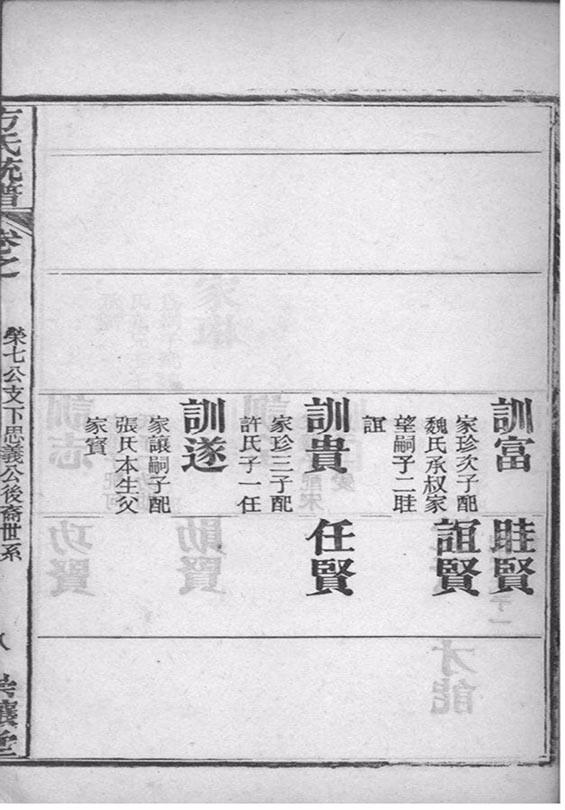 訓富
家珍次子配
魏氏承叔家
望嗣子二眭
誼
訓貴
家珍三子配
許氏子一任
訓遂
家讓嗣子配
張氏本生父
家賓
眭賢
誼賢
任賢
方氏統譜
卷之
榮七公支下思義公後裔世系
八